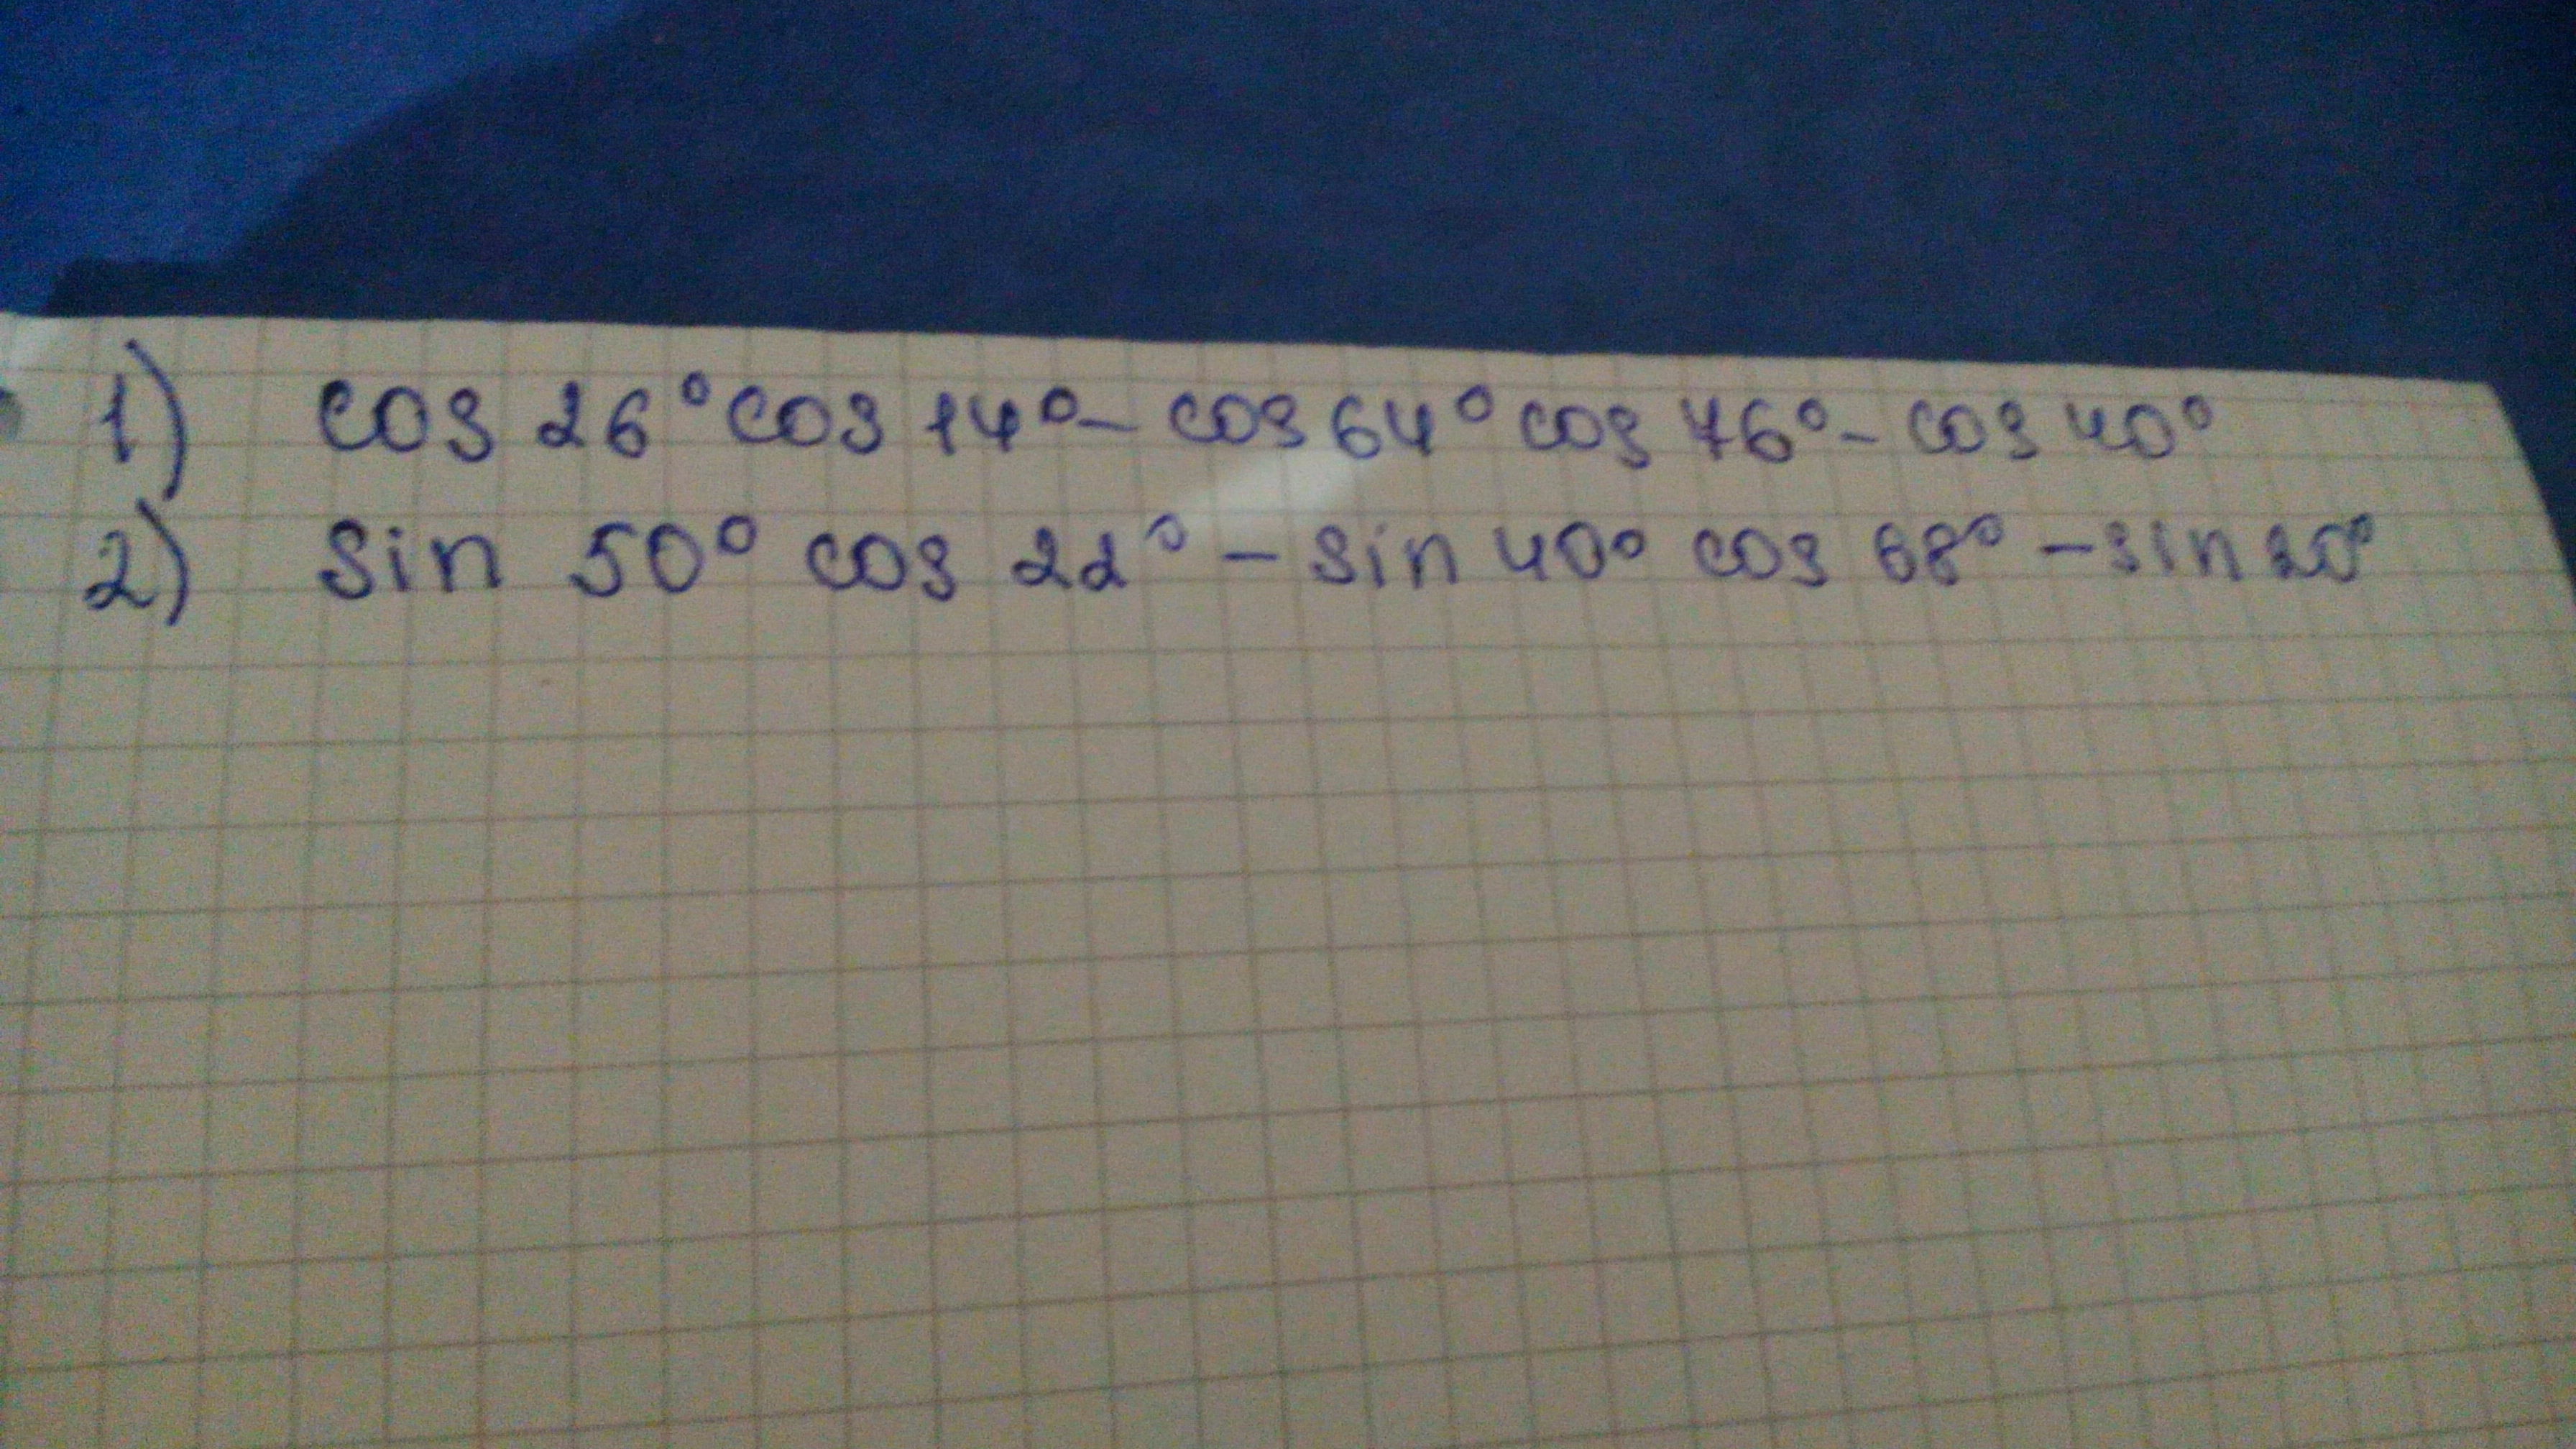 1) cos 26° cos 14° - cos 64° cos 76° - cos 40°
2) sin 50° cos 22° - sin 40° cos 68° - sin 20°